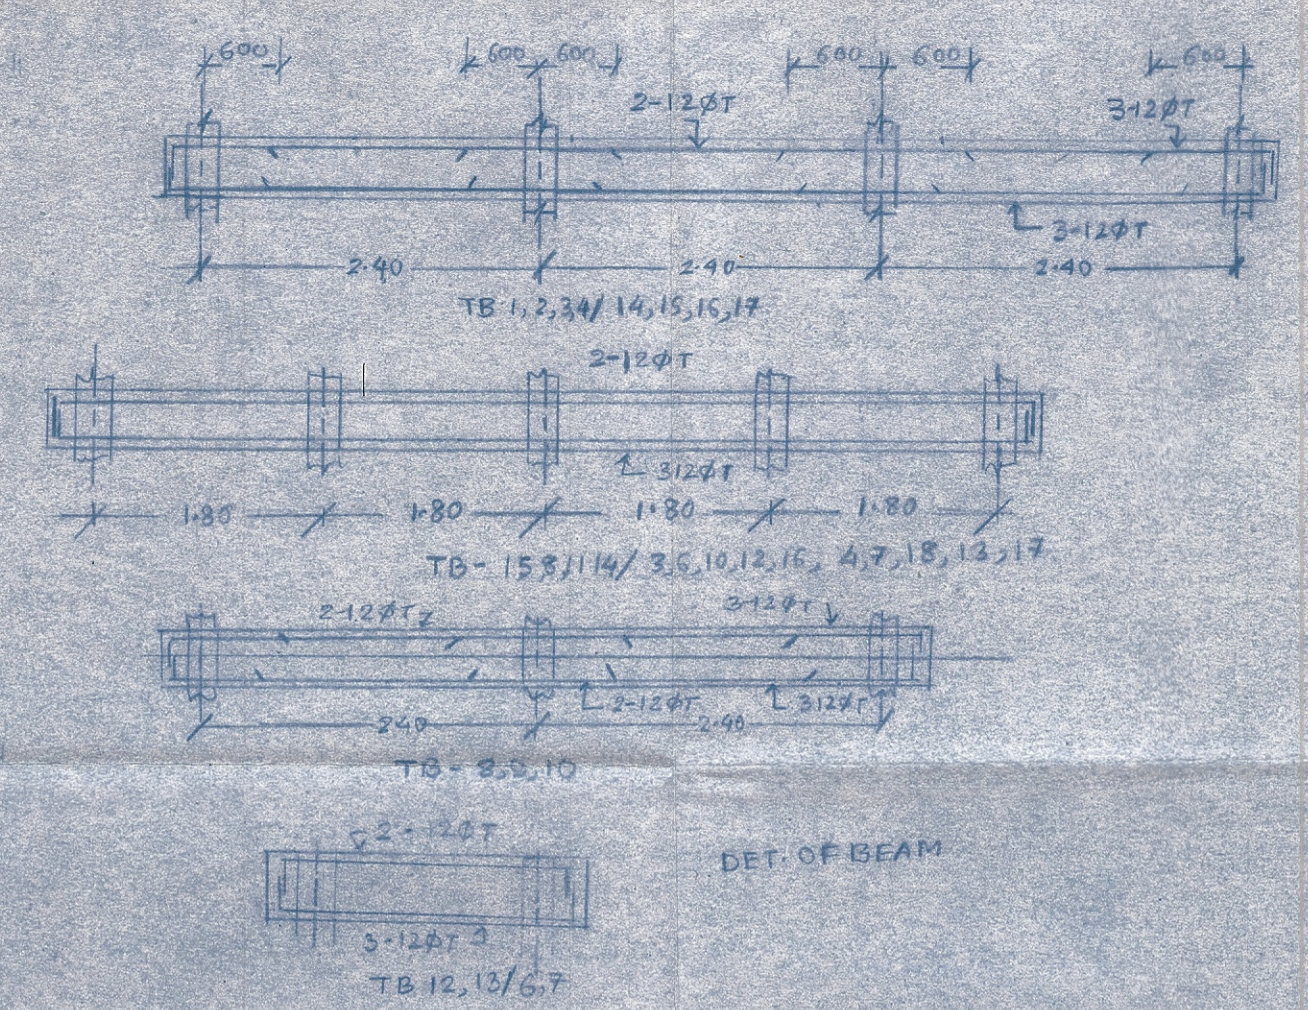 600 600 600 600 600 600
2-12ØT 3-12ØT
3-12ØT
2.40 2.40 2.40
TB 1,2,3,4/ 14,15,16,17
2-12ØT
312ØT
1.80 1.80 1.80 1.80
TB- 15 8,11 14/ 3,6,10,12,16, 4,7,18,13,17
2-12ØT 3-12ØT
2-12ØT 312ØT
240 2.40
TB- 8,9,10
2-12ØT
DET. OF BEAM
3-12ØT
TB 12,13/6,7